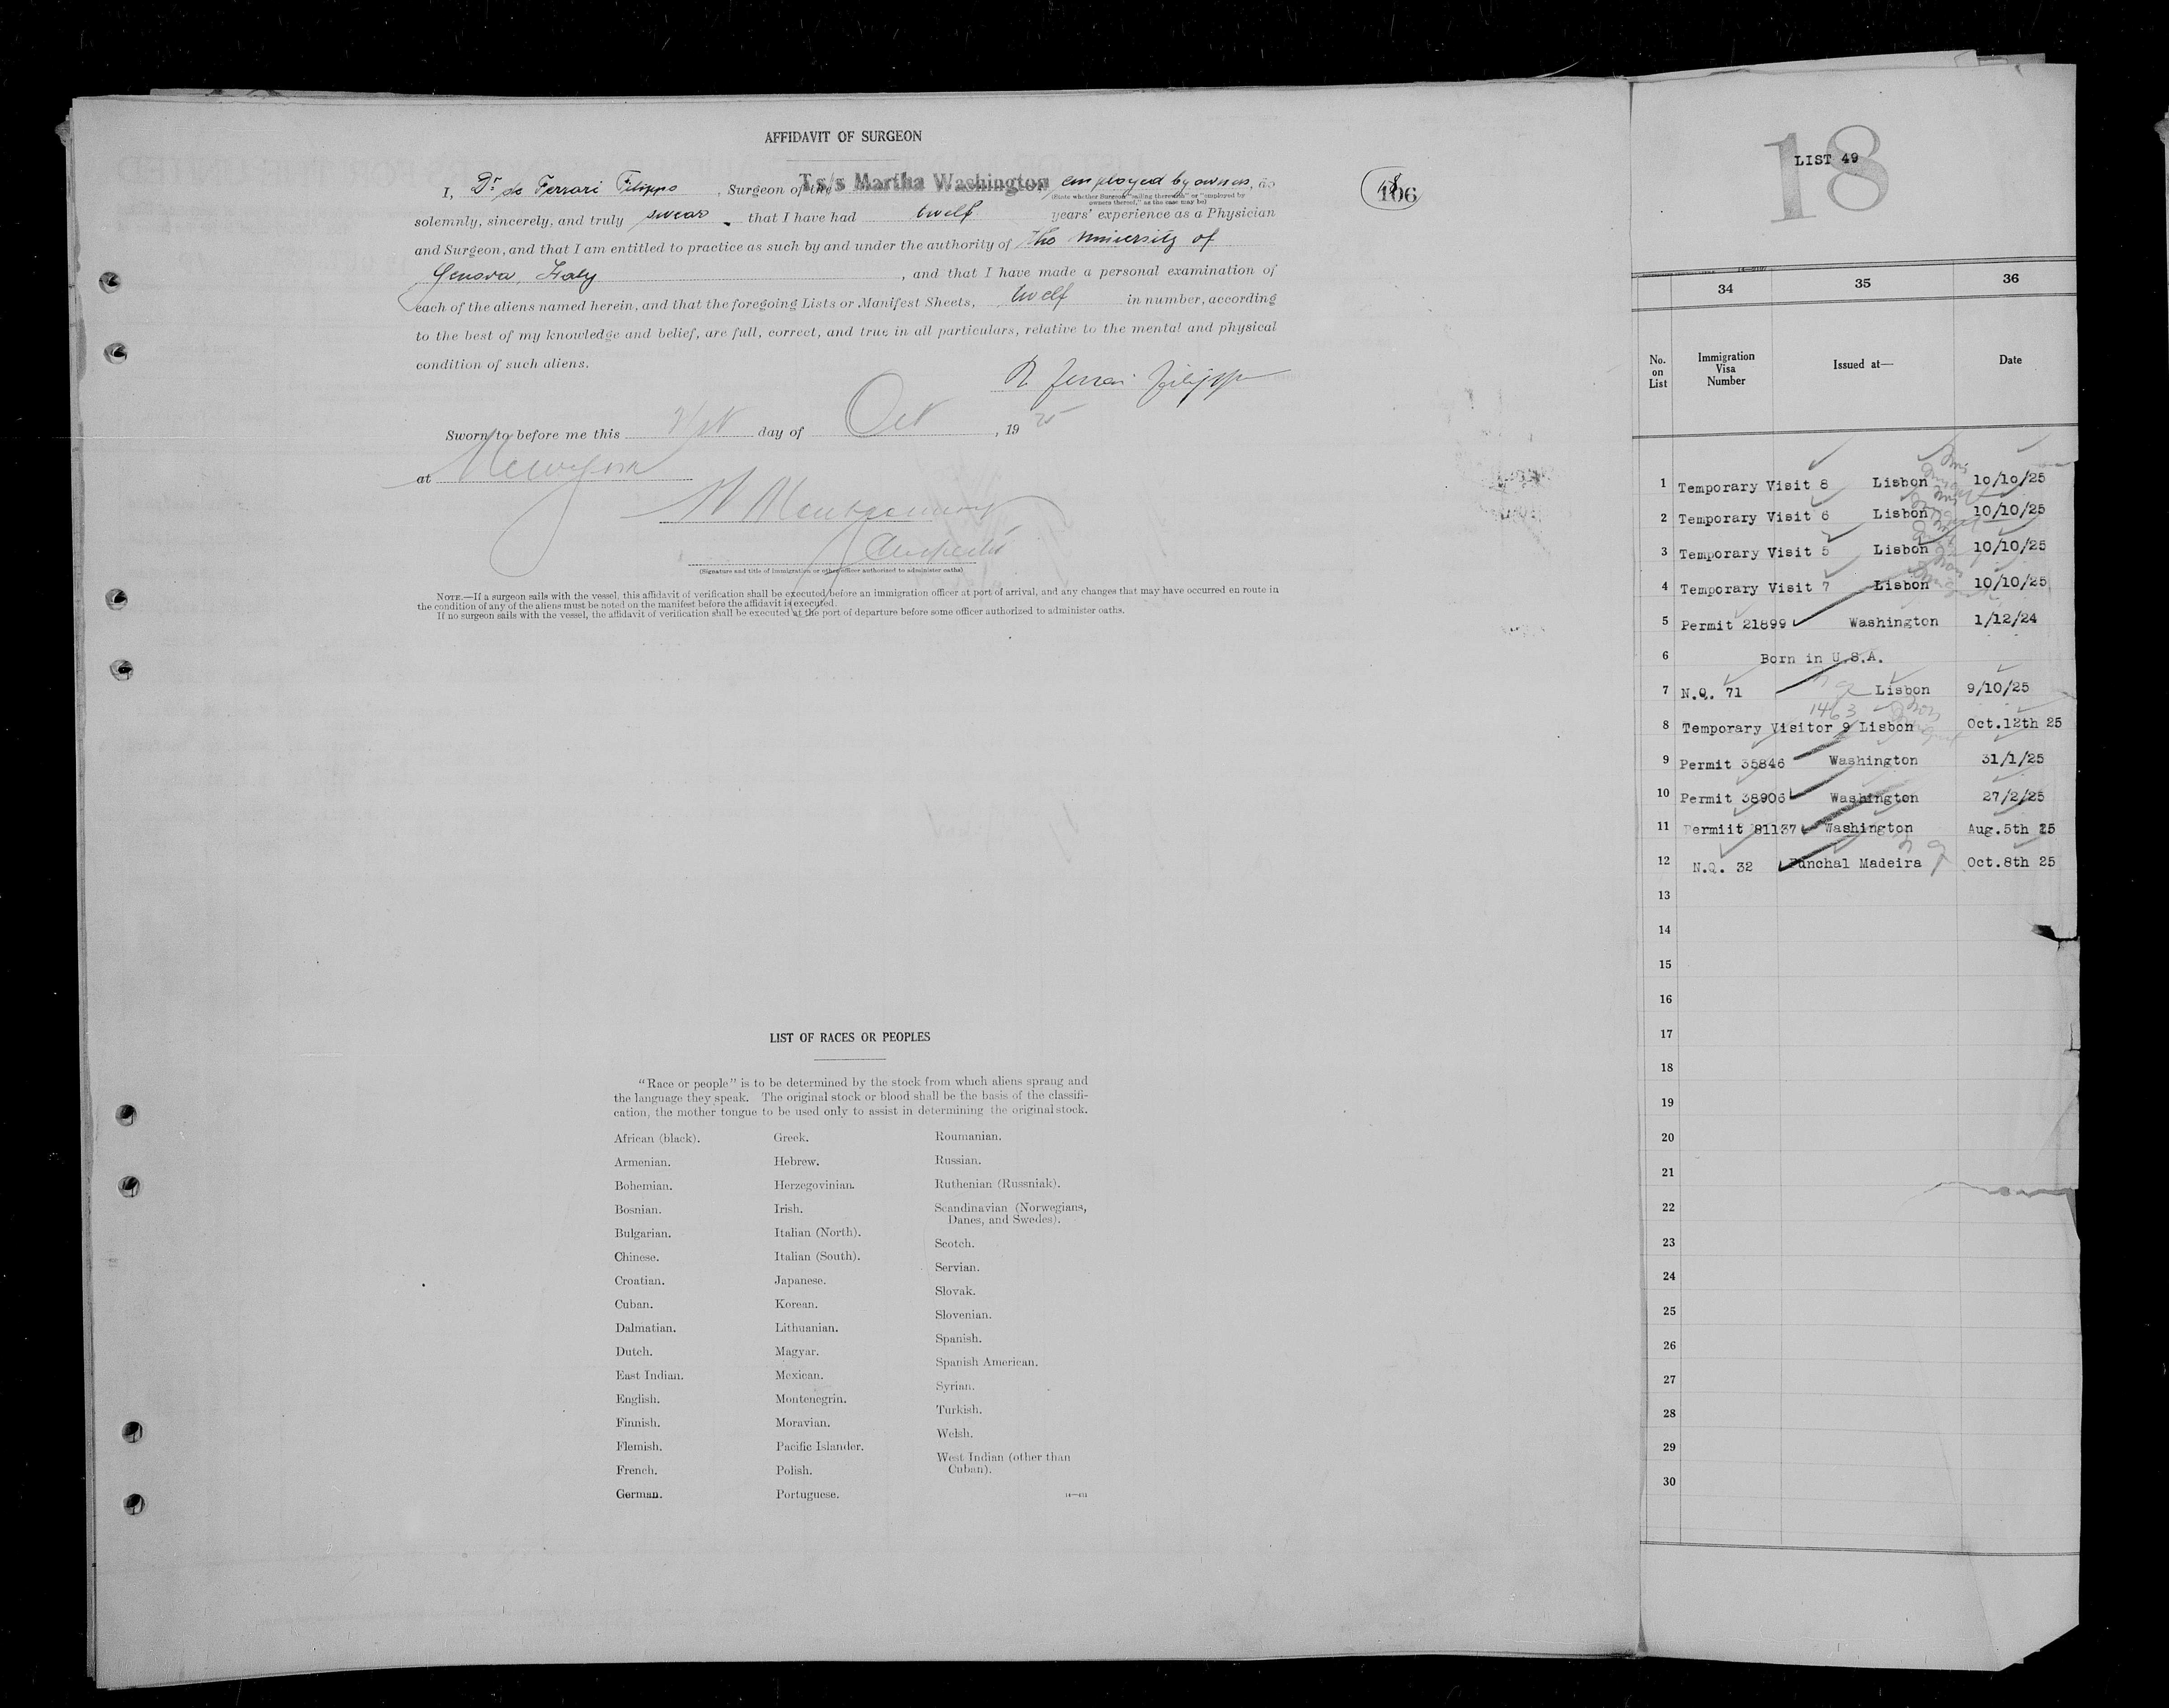 AFFIDAVIT OF SURGEON
I, Dr de Ferrari Filippo, Surgeon of the Ts/s Martha Washington, employed by owners, do
(State whether Surgeon "sailing therewith" or "employed by
owners thereof," as the case may be)
solemnly, sincerely, and truly swear that I have had twelf years' experience as a Physician
and Surgeon, and that I am entitled to practice as such by and under the authority of The University of
Genova, Italy, and that I have made a personal examination of
each of the aliens named herein, and that the foregoing Lists or Manifest Sheets, twelf in number, according
to the best of my knowledge and belief, are full, correct, and true in all particulars, relative to the mental and physical
condition of such aliens.
Sworn to before me this 21st day of Oct, 1925
at New York
(Signature and title of immigration or other officer authorized to administer oaths)
NOTE.—If a surgeon sails with the vessel, this affidavit of verification shall be executed before an immigration officer at port of arrival, and any changes that may have occurred en route in
the condition of any of the aliens must be noted on the manifest before the affidavit is executed.
If no surgeon sails with the vessel, the affidavit of verification shall be executed at the port of departure before some officer authorized to administer oaths.
106
LIST OF RACES OR PEOPLES
"Race or people" is to be determined by the stock from which aliens sprang and
the language they speak. The original stock or blood shall be the basis of the classifi-
cation, the mother tongue to be used only to assist in determining the original stock.
African (black).
Armenian.
Bohemian.
Bosnian.
Bulgarian.
Chinese.
Croatian.
Cuban.
Dalmatian.
Dutch.
East Indian.
English.
Finnish.
Flemish.
French.
German.
Greek.
Hebrew.
Herzegovinian.
Irish.
Italian (North).
Italian (South).
Japanese.
Korean.
Lithuanian.
Magyar.
Mexican.
Montenegrin.
Moravian.
Pacific Islander.
Polish.
Portuguese.
Roumanian.
Russian.
Ruthenian (Russniak).
Scandinavian (Norwegians,
Danes, and Swedes).
Scotch.
Servian.
Slovak.
Slovenian.
Spanish.
Spanish American.
Syrian.
Turkish.
Welsh.
West Indian (other than
Cuban).
18
LIST 49
34 35 36
No. on List Immigration Visa Number Issued at— Date
1 Temporary Visit 8 Lisbon 10/10/25
2 Temporary Visit 6 Lisbon 10/10/25
3 Temporary Visit 5 Lisbon 10/10/25
4 Temporary Visit 7 Lisbon 10/10/25
5 Permit 21899 Washington 1/12/24
6 Born in U.S.A.
7 N.Q. 71 Lisbon 9/10/25
1463
8 Temporary Visitor 9 Lisbon Oct.12th 25
9 Permit 35846 Washington 31/1/25
10 Permit 38906 Washington 27/2/25
11 Permiit 81137 Washington Aug.5th 25
12 N.Q. 32 Funchal Madeira Oct.8th 25
13
14
15
16
17
18
19
20
21
22
23
24
25
26
27
28
29
30